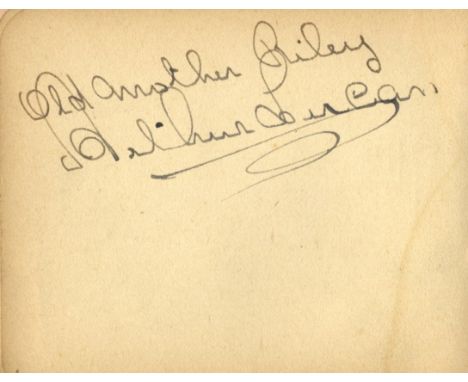 Old Mother Riley
Arthur Lucan